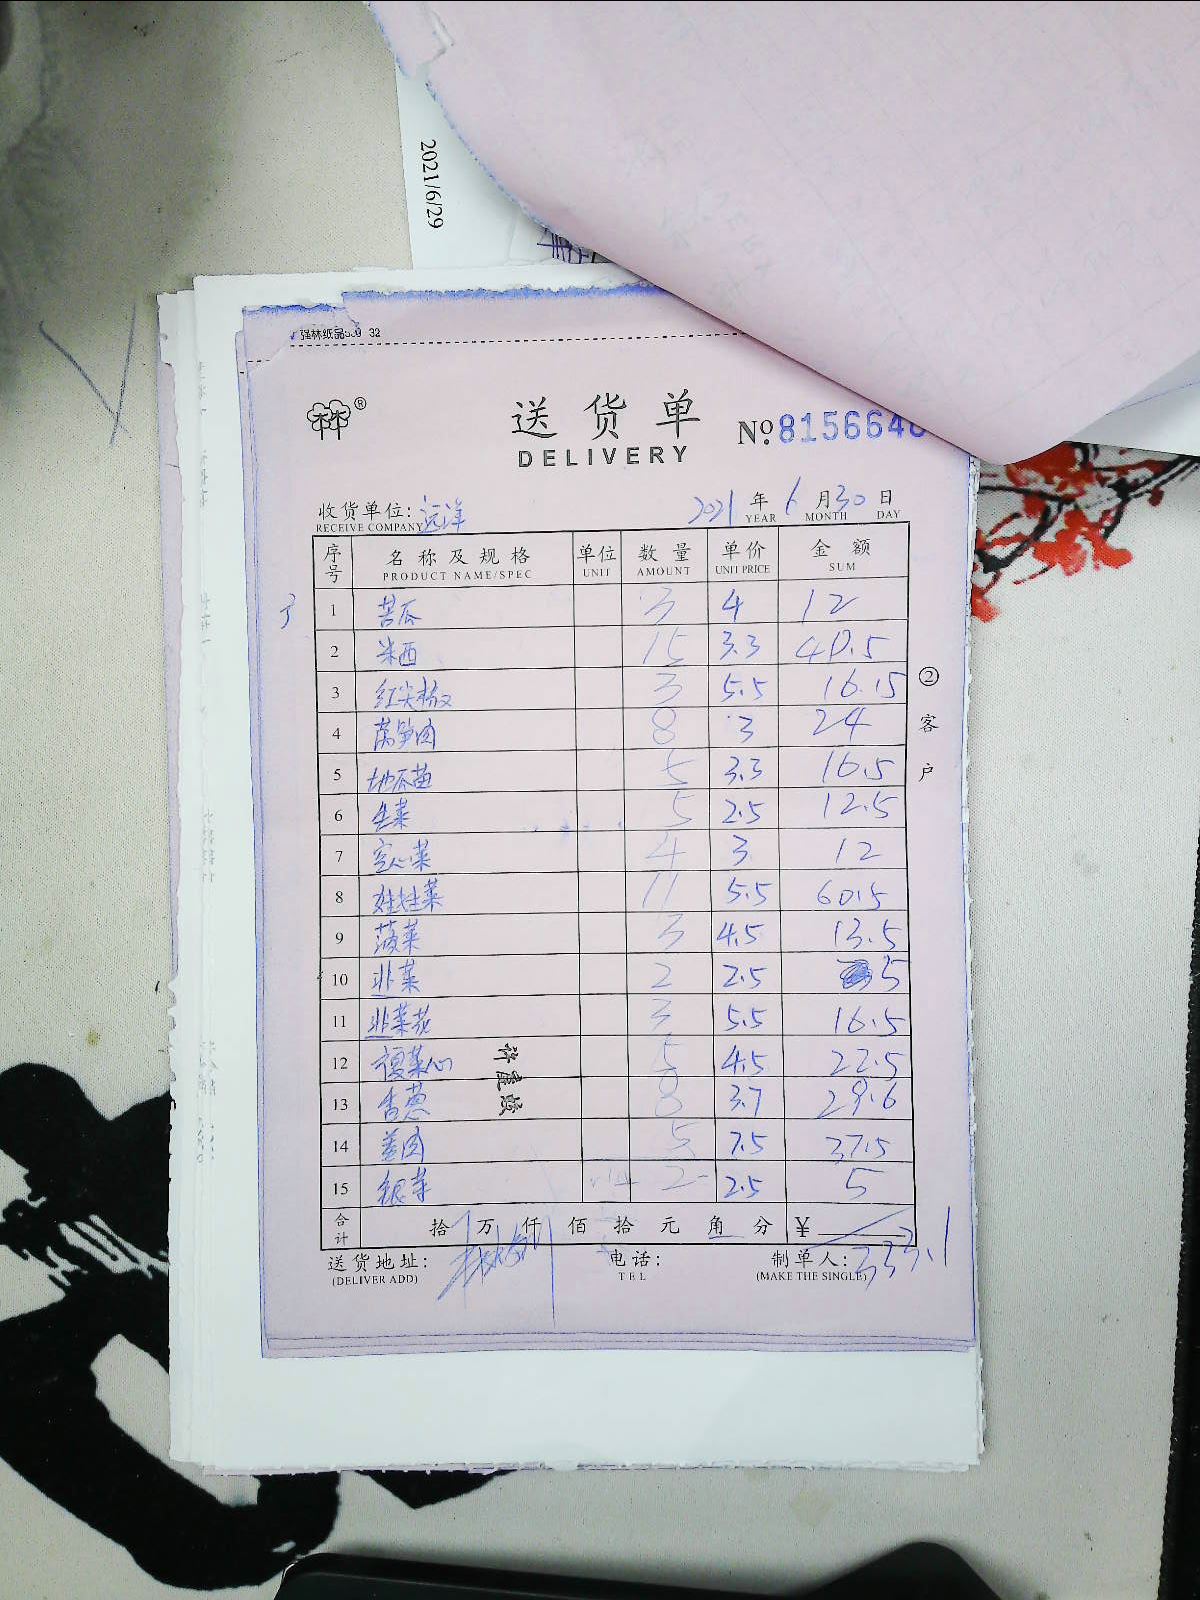 2021/6/29
强林纸品 32
送货单
DELIVERY
No. 8156646
收货单位: 远洋 2021 年 6 月 30 日
RECEIVE COMPANY YEAR MONTH DAY
序号 名称及规格 单位 数量 单价 金额
PRODUCT NAME/SPEC UNIT AMOUNT UNIT PRICE SUM
1 苦瓜 3 4 12
2 米西 15 3.3 49.5
3 红尖椒 3 5.5 16.15
4 莴笋肉 8 3 24
5 地瓜苗 5 3.3 16.5
6 生菜 5 2.5 12.5
7 空心菜 4 3 12
8 娃娃菜 11 5.5 60.5
9 菠菜 3 4.5 13.5
10 韭菜 2 2.5 5
11 韭菜花 3 5.5 16.5
12 菜心 5 4.5 22.5
13 香葱 8 3.7 29.6
14 姜肉 5 7.5 37.5
15 银芽 2 2.5 5
合计 拾 万 仟 佰 拾 元 角 分 ¥
333.1
送货地址: 电话: 制单人:
(DELIVER ADD) TEL (MAKE THE SINGLE)
②客户